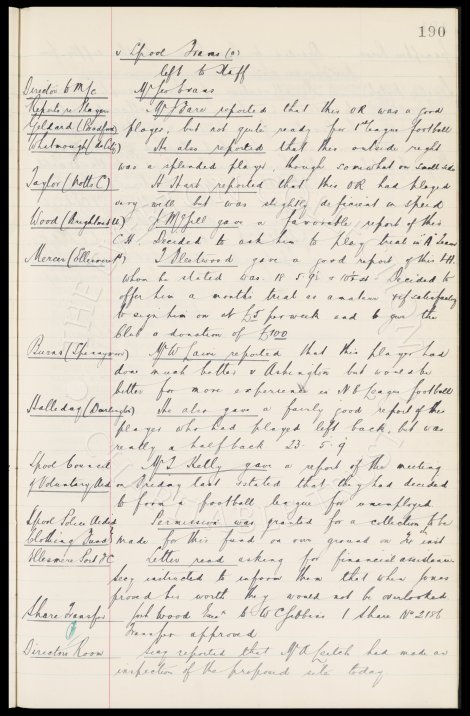 190
v Lpool Trams (a)
left to Staff
Director to M/c Mr Geo Evans
Reports re Players Mr J Bare reported that this OR was a good
Geldard (Bradford) player, but not quite ready for 1st League football
Whatmough (Bd City) He also reported that this outside right
was a splendid player, though somewhat on small side
Taylor (Notts C) H Hart reported that this OR had played
very well but was slightly deficient in speed
Wood (Brightmet Ut) J McGill gave a favorable report of this
C.H. Decided to ask him to play trial in "A" Team
Mercer (Ellesmere Pt) J Fleetwood gave a good report of this LH
whom he stated was 18 5.9½ & 10st Decided to
offer him a months trial as amateur & if satisfactory
to sign him on at £5 per week and to give the
Club a donation of £100
Burns (Spennymoor) Mr W Law reported that this player had
done much better v Ashington but would be
better for more experience in N E League football
Halleday (Darlington) He also gave a fairly good report of this
player who had played left back, but was
really a half back 23. 5.9
Lpool Council Mr T Kelly gave a report of the meeting
of Voluntary Aid on Friday last & stated that they had decided
to form a football league for unemployed
Lpool Police Aided Permission was granted for a collection to be
Clothing Fund made for this fund on our ground on inst
Ellesmere Port FC Letter read asking for financial assistance
Secy instructed to inform them that when Jones
proved his worth they would not be overlooked
Share Transfer Josh Wood to W C Gibbins 1 Share No 2186
Transfer approved
Directors Room Secy reported that Mr A Leitch had made an
inspection of the proposed site today